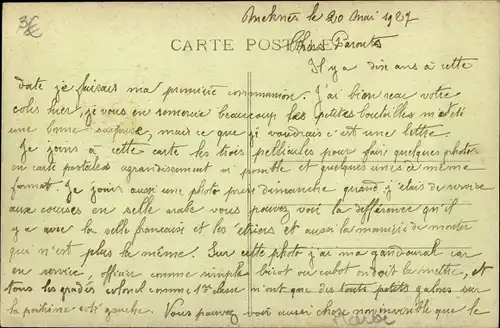 3€
Meknès le 20 Mai 1927
CARTE POSTALE
Chers Parents
Il y a dix ans à cette
date je faisais ma première communion. J'ai bien reçu votre
colis hier, je vous en remercie beaucoup les petites bouteilles m'a été
une bonne surprise, mais ce que je voudrais c'est une lettre.
Je joins à cette carte les trois pellicules pour faire quelques photos
en carte postales agrandissement si possible et quelques unes à même
format. Je joins aussi une photo prise dimanche quand j'étais de service
aux courses en selle arabe vous pouvez voir la différence qu'il
y a avec la selle française et les étriers et aussi la manière de monter
qui n'est plus la même. Sur cette photo j'ai ma gandourah car
en service, officier comme simple bicot ou cabot on doit la mettre, et
tous les gradés colonel comme 1re classe n'ont que des touts petits galons sur
la poitrine côté gauche. Vous pouvez voir aussi chose non visible que le
Maroc